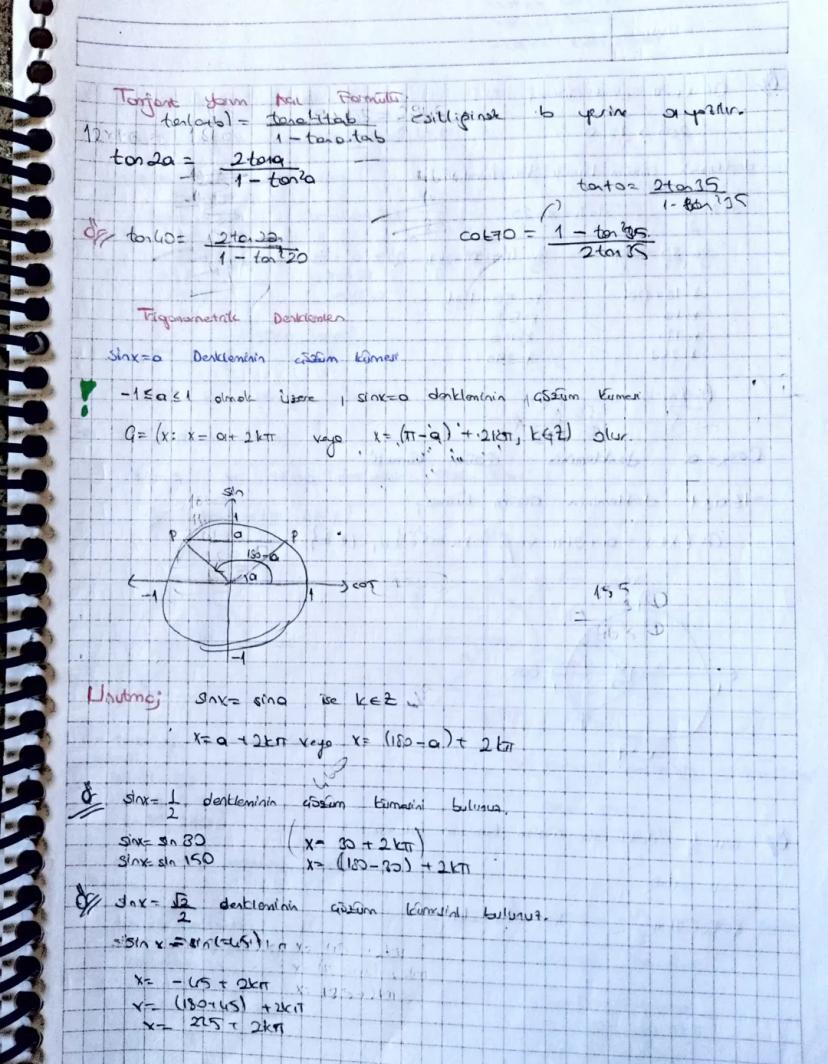 Tanjant yarım Açı Formülü
tan(a+b) = tana+tab / 1 - tana.tab eşitliğinde b yerine a yazılır.
tan2a = 2tana / 1 - tan²a
tan70 = 2tan35 / 1 - tan²35
ör/ tan40 = 2tan20 / 1 - tan²20
cot70 = 1 - tan²35 / 2tan35
Trigonometrik Denklemler
sinx=a Denkleminin çözüm kümesi
! -1≤a≤1 olmak üzere, sinx=a denkleminin çözüm kümesi
Ç= (x: x = a+ 2kπ veya x= (π-a) + 2kπ, k∈Z) olur.
sin
1
P a P
180-a
a
-1 1 cos
-1
Unutma; sinx= sina ise k∈Z
x= a + 2kπ veya x= (180-a) + 2kπ
ör sinx= 1/2 denkleminin çözüm kümesini bulunuz.
sinx= sin 30 x= 30 + 2kπ
sinx= sin 150 x= (180-30) + 2kπ
ör/ sinx= √2/2 denkleminin çözüm kümesini bulunuz.
sin x = sin(-45)
x= -45 + 2kπ
x= (180+45) + 2kπ
x= 225 + 2kπ